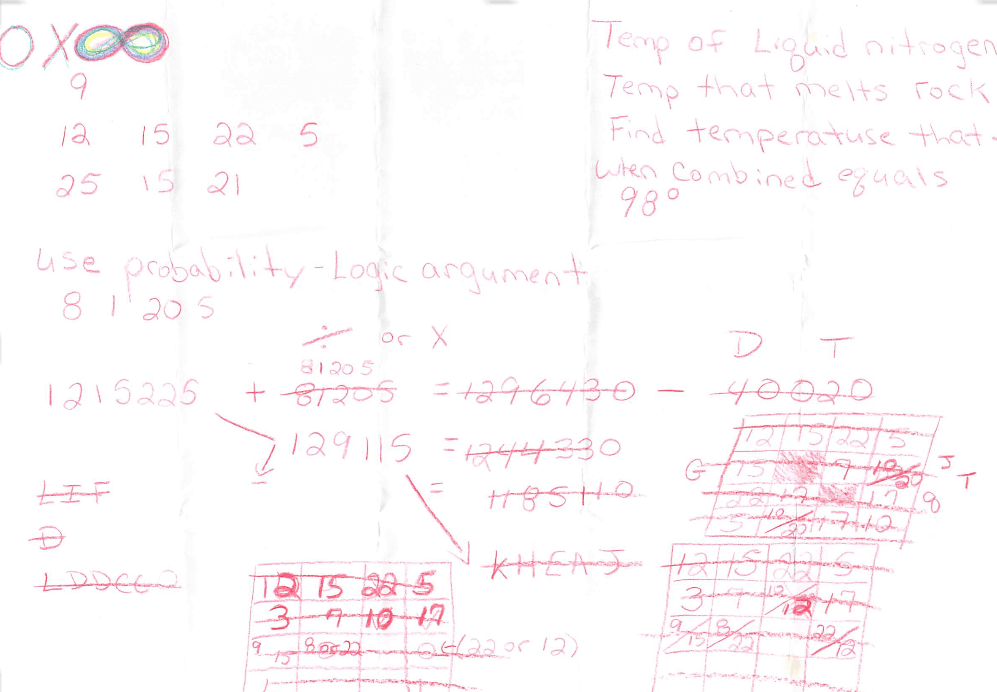 OX∞
9
12 15 22 5
25 15 21
Temp of Liquid nitrogen
Temp that melts rock
Find temperatuse that
when Combined equals
98°
use probability - Logic argument
8 1 20 5
÷ or X
81205
1215225 + 81205 = 1296430 - 40020
D T
129115 = 1244330
= 1185110
KHEAJ
LIF
D
LDDCC2
12 15 22 5
G 15 9 J
22 17 17 8 T
5 17 10
12 15 22 5
3 7 10 17
9 15 8 or 22 (22 or 12)
12 15 22 5
3 7 12/12 17
9/15 8/22 22/12